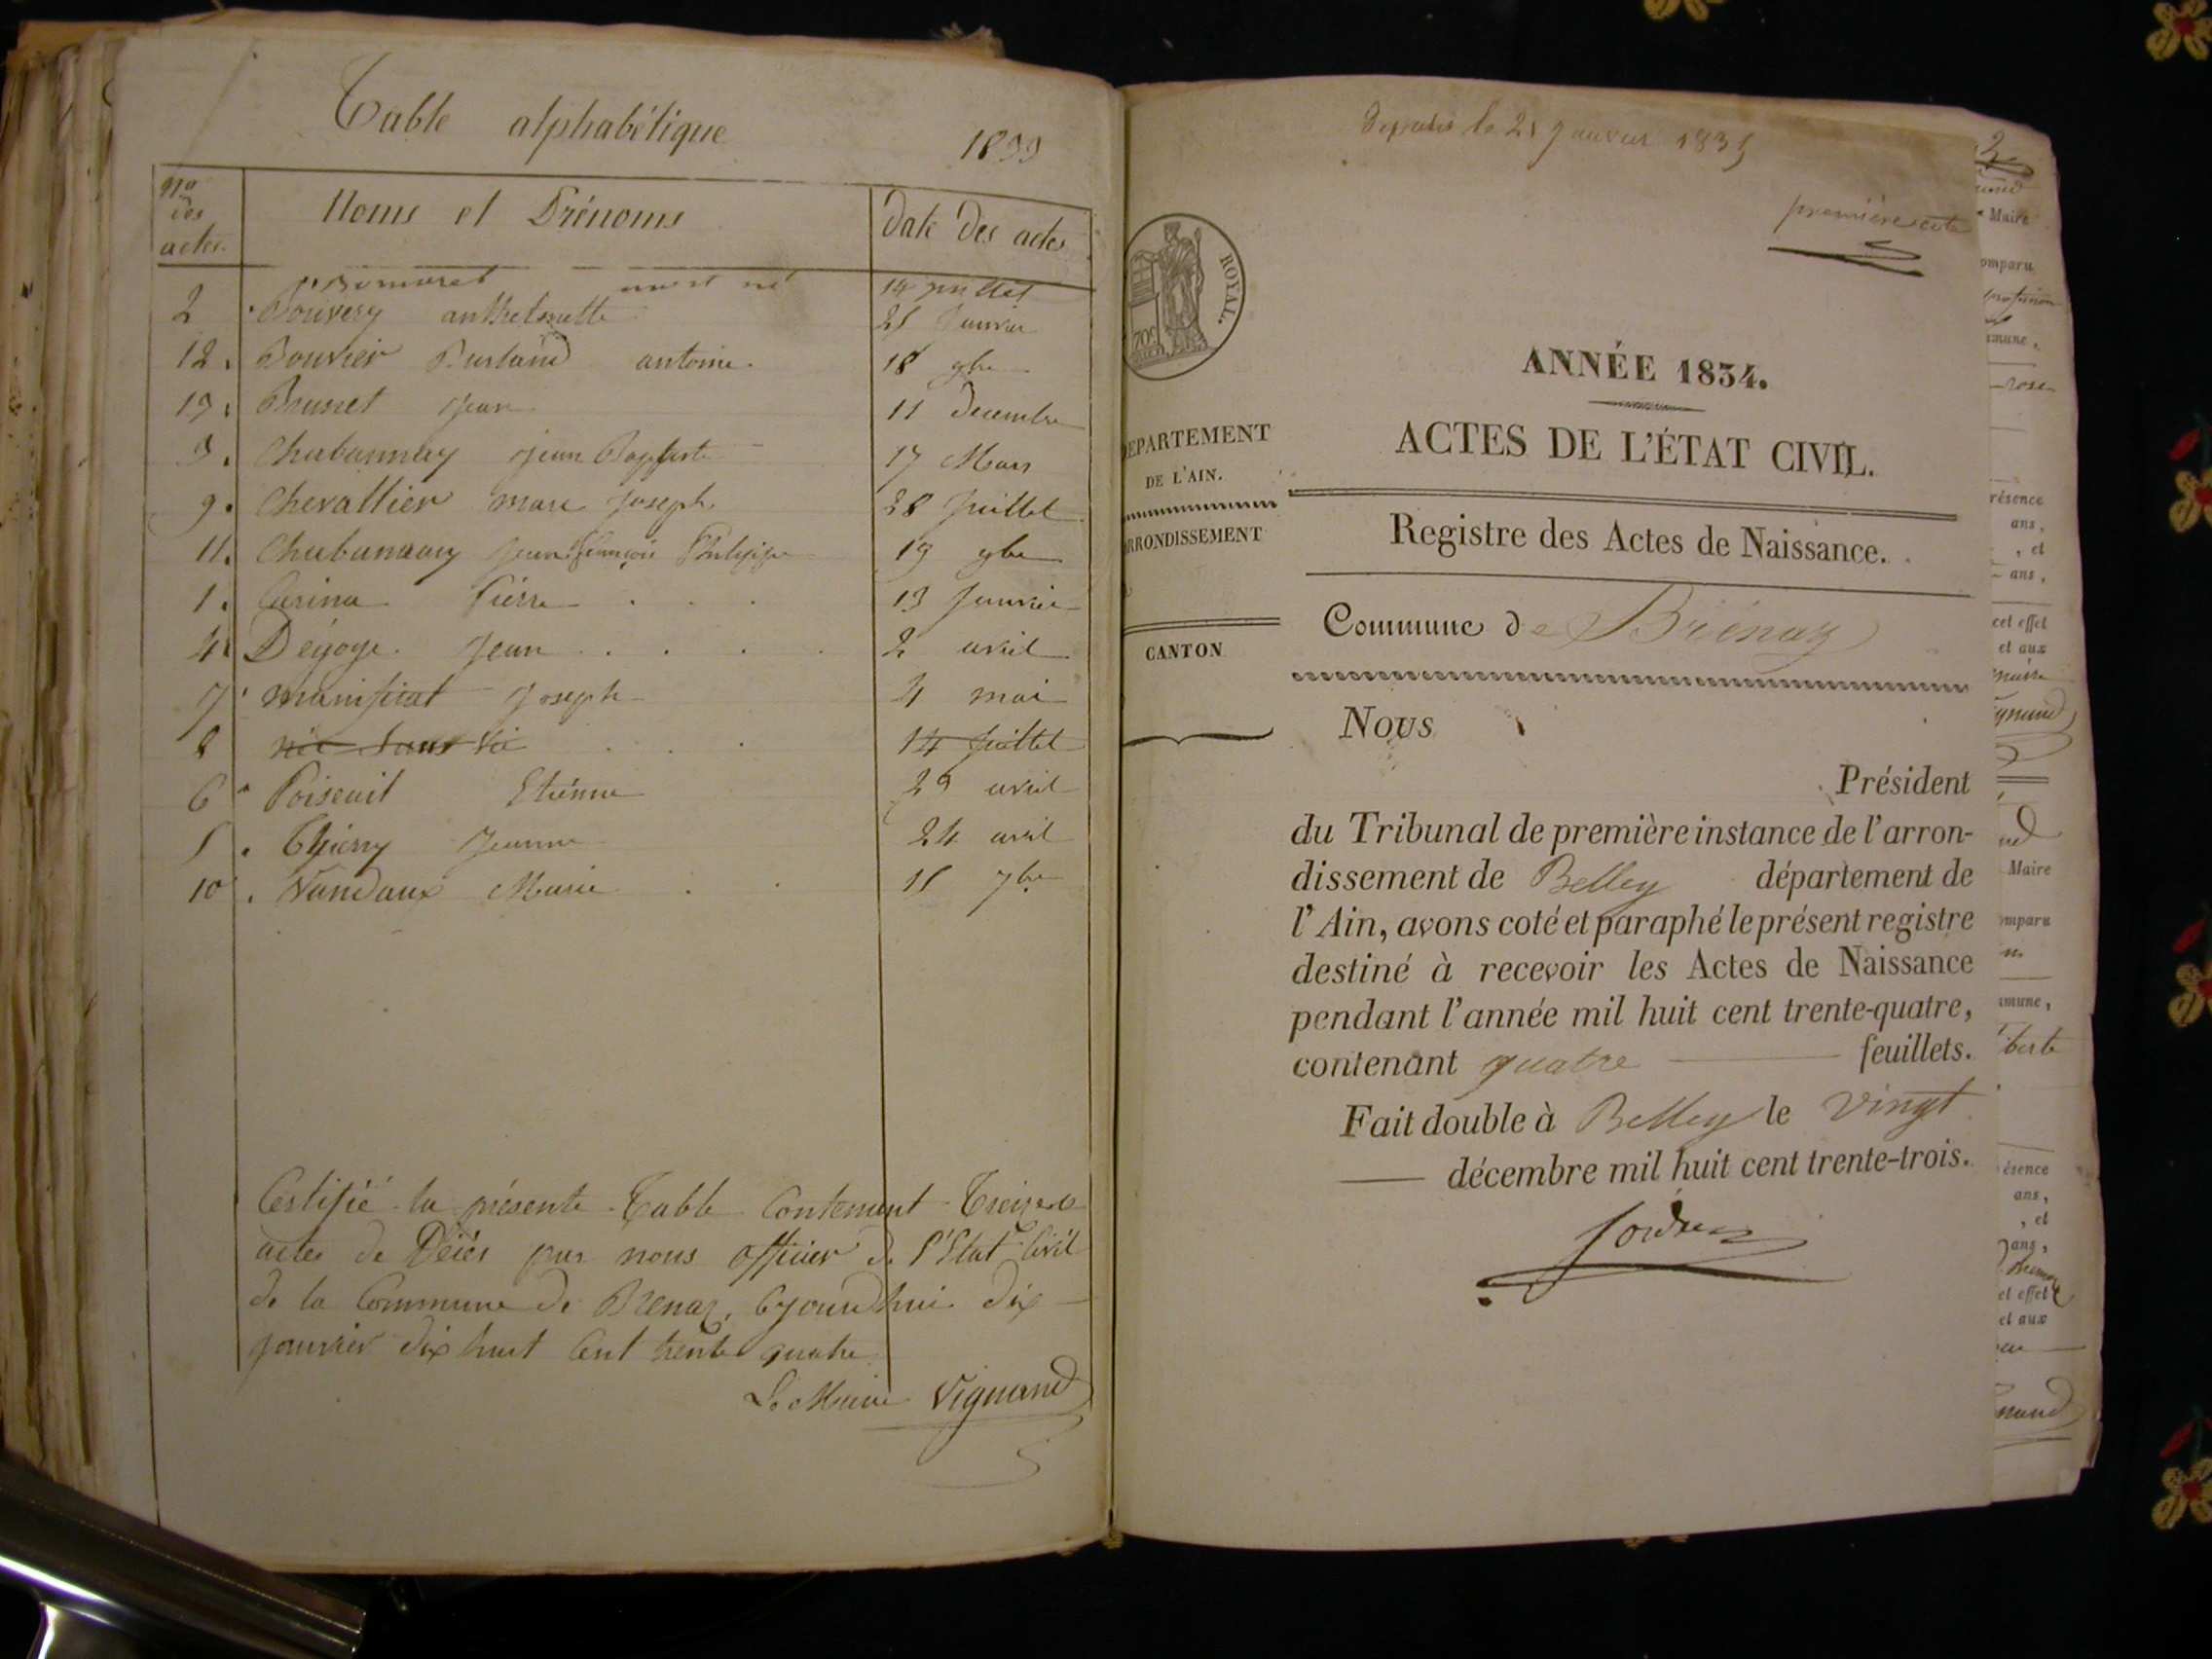 Table alphabétique
1833
Nos des actes
Noms et Prénoms
Date des actes
mort né 14 juillet
2 Bouvery anthelmette 21 Janvier
12. Bouvier Burland antoine. 18 9bre
13. Brunet Jean 11 Decembre
3. Chabannay Jean Baptiste 17 Mars
9. Chevallier marie Joseph 28 Juillet
11. Chabannay Jean françois Philippe 19 9bre
1. Carina Pierre 13 Janvier
4 Dégoye. Jean 2 avril
7 manificat Joseph 4 mai
8 née Sans vie 14 Juillet
6 Poiseuit Etienne 29 avril
5. Thierry Jeanne 24 avril
10. Vandaux Marie 15 7bre
Certifié la présente Table Contenant Treize
actes de Décès par nous officier de l'Etat Civil
de la Commune de Brenaz, Cejourdhui dix
janvier dix huit Cent trente quatre
Le Maire Vignand
le 21 Janvier 1835
première
ROYAL.
70c
ANNÉE 1834.
ACTES DE L'ÉTAT CIVIL.
DEPARTEMENT
DE L'AIN.
ARRONDISSEMENT
CANTON
Registre des Actes de Naissance.
Commune de Brénaz
Nous
Président
du Tribunal de première instance de l'arron-
dissement de Belley département de
l'Ain, avons coté et paraphé le présent registre
destiné à recevoir les Actes de Naissance
pendant l'année mil huit cent trente-quatre,
contenant quatre feuillets.
Fait double à Belley le vingt
décembre mil huit cent trente-trois.
2
Maire
omparu
mmune,
rose
résence
ans,
, et
ans,
cet effet
et aux
Maire
omparu
mmune,
ésence
ans,
, et
ans,
et effet
et aux